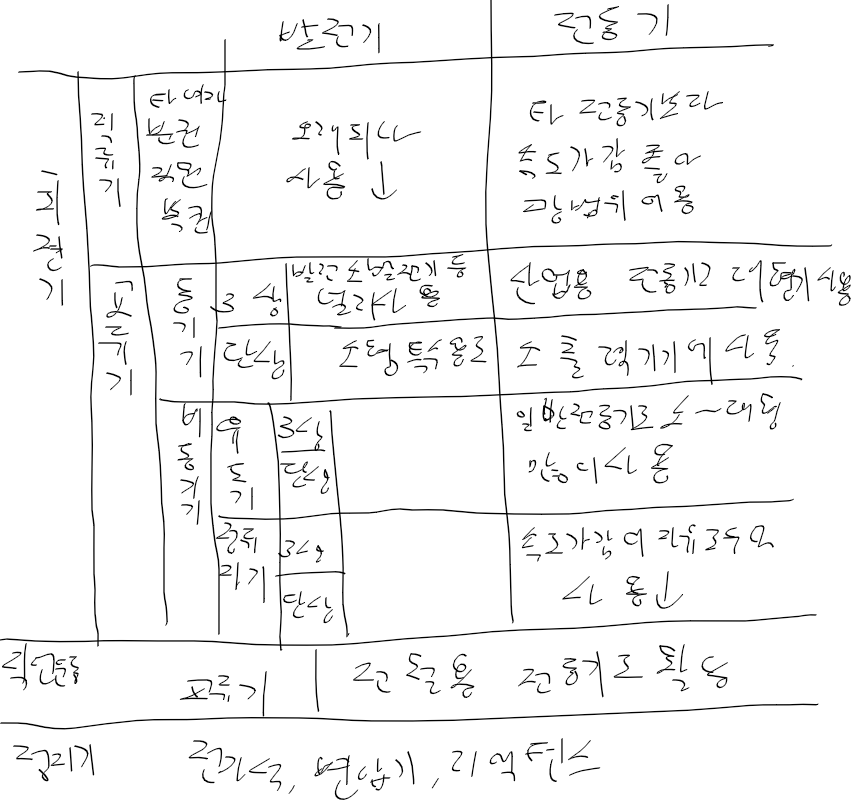 발전기 전동기
회전기
직류기
타여자
분권
직권
복권
오래되나
사용 ↓
타 전동기보다
속도가감 좋아
광범위 이용
교류기
동기기
3상
발전소발전기 등
널리사용
산업용 전동기로 대형기 사용
단상
소형특수용도
소출력기기에 사용.
비동기기
유도기
3상
단상
일반전동기로 소~대형
많이사용
정류자기
3상
단상
속도가감이 자유로우면
사용↓
직선운동
교류기
전철용 전동기로 활용
정지기
전자석, 변압기, 리액턴스